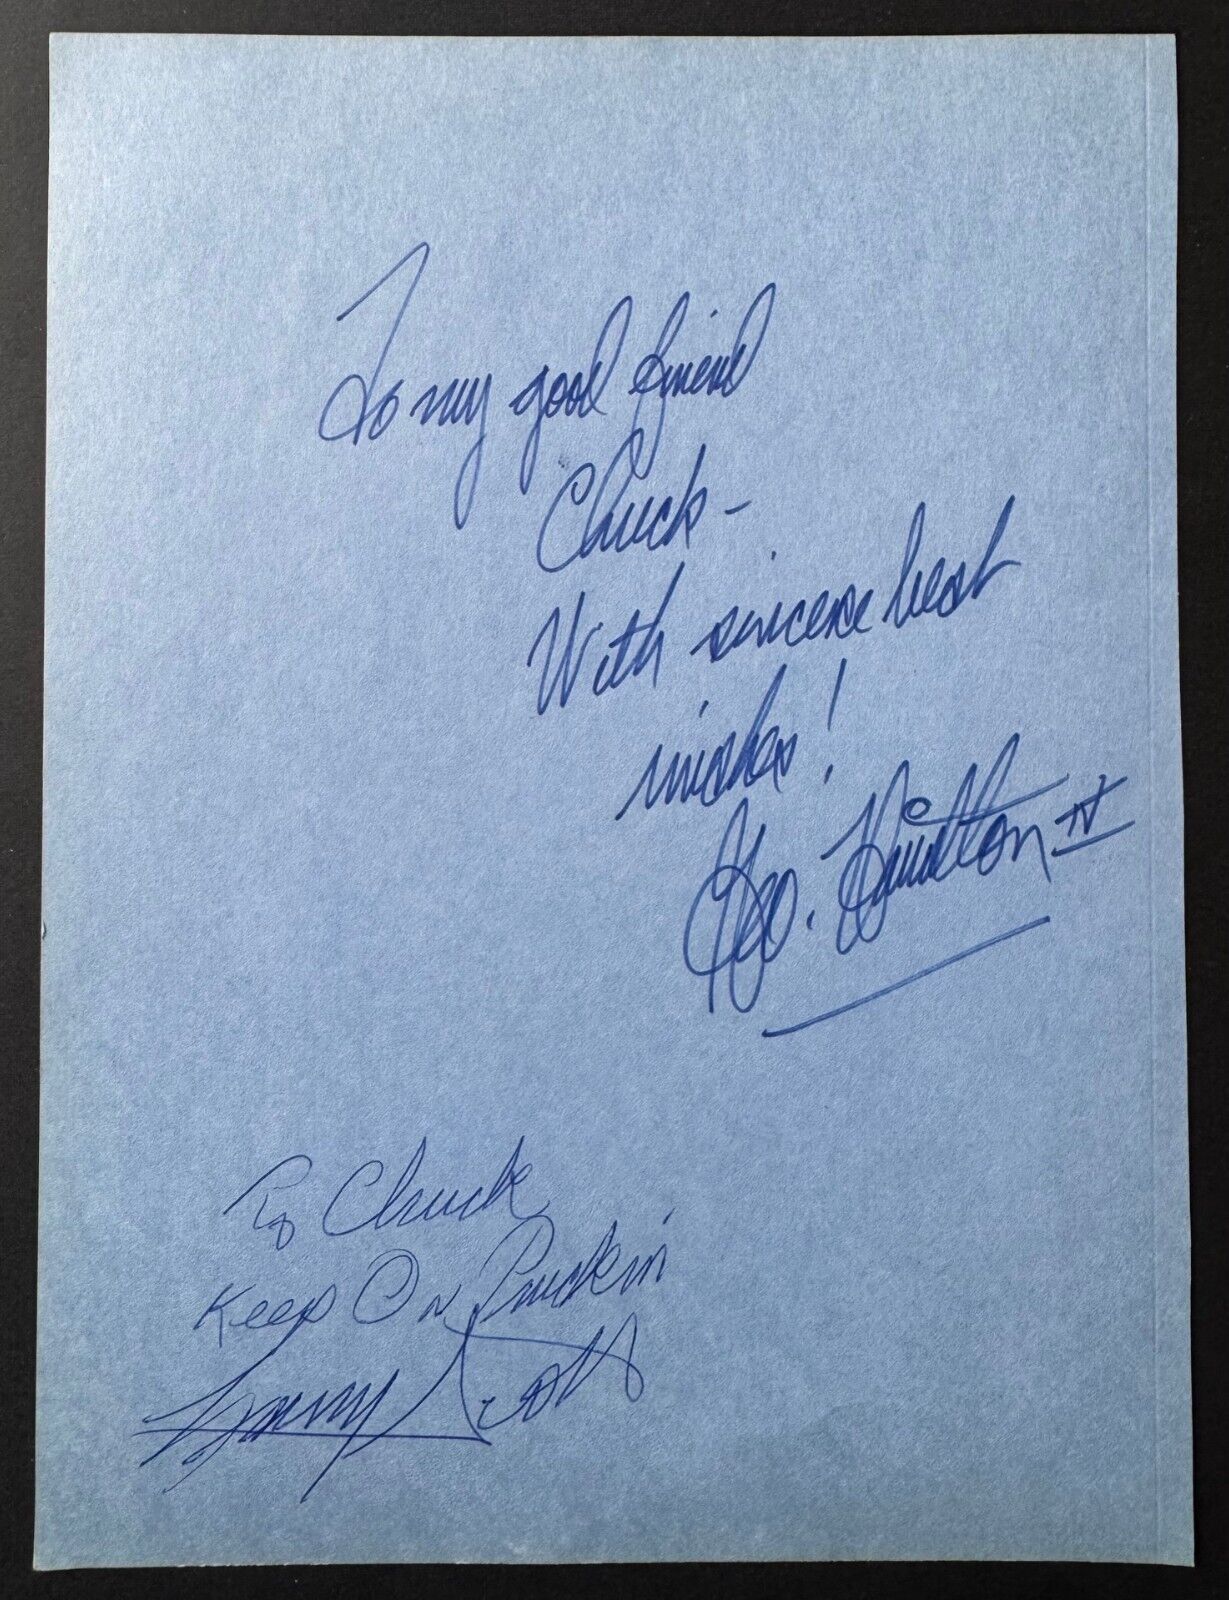 To my good friend
Chuck-
With sincere best
wishes!
Geo. Hamilton IV
To Chuck
Keep On Puckin'
Scott